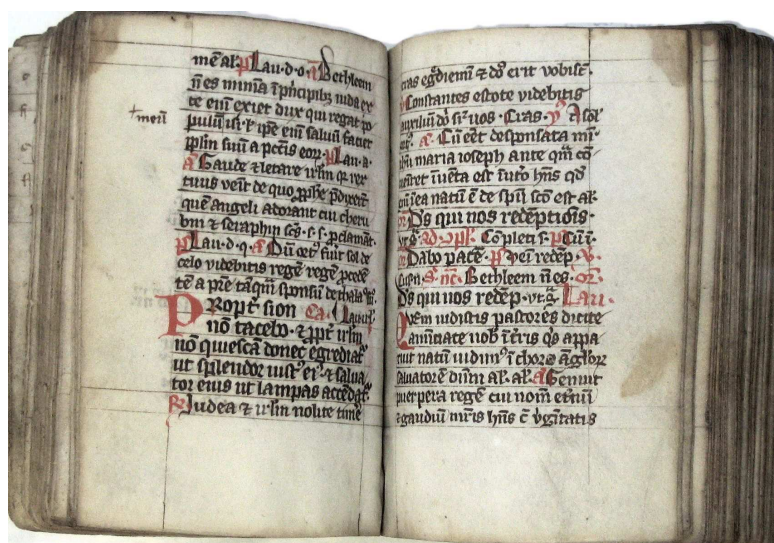 mē al P Lau · d · o · A Bethleem
n̄ es minīa ī p̄ncipib; iuda ex
te eni exiet dux qui regat po
pulū isrl ipe eni saluū faciet
pplm suū a pctīs eoꝝ P Lau · a ·
A Gaude & letare irlm
tuus venit de quo pphe p̄dixert
quē angeli adorant cui cheru
bin & seraphin scs · s · s · pclamāt
P Lau · d · q · a Dū ortꝰ fūit sol de
celo videbitis regē regē pcedē
tē a pr̄e tāqm̄ sponsū de thala
 Propt sion ca
nō tacebo · & ppt irlm
nō quiescā donec egrediatꝰ
ut splendor iustꝰ eiꝰ & salua
tor eius ut lampas accēdatꝰ
R Iudea & irlm nolite time
+ meū
cras egdiemī & dō erit vobisc̄ ·
V Constantes estote videbitis
auxiliū dō sup nos · Cras · V A sol
a Cū eēt desponsata mr̄
maria ioseph ante qm̄ cō
īuēta est īuto hn̄s qd
eī ea natū ē de spū scō est al ·
or Ds qui nos redēptiōis ·
ad vpl · Cōpleti s · P Cū ī ·
Dabo pacē · ps redēp v ·
nc̄ · Bethleem n̄ es · or ·
Ds qui nos redēp · vt sa Lau ·
Quem uidistis pastores dicite
anūciate nob ī t̄ris qs appa
ruit natū uidimꝰ ī choro āgloꝝ
saluatorē dnm al · al · A Genuit
puerpera regē cui nom̄ et̄nū
& gaudiū mr̄is hn̄s c̄ vgītatis